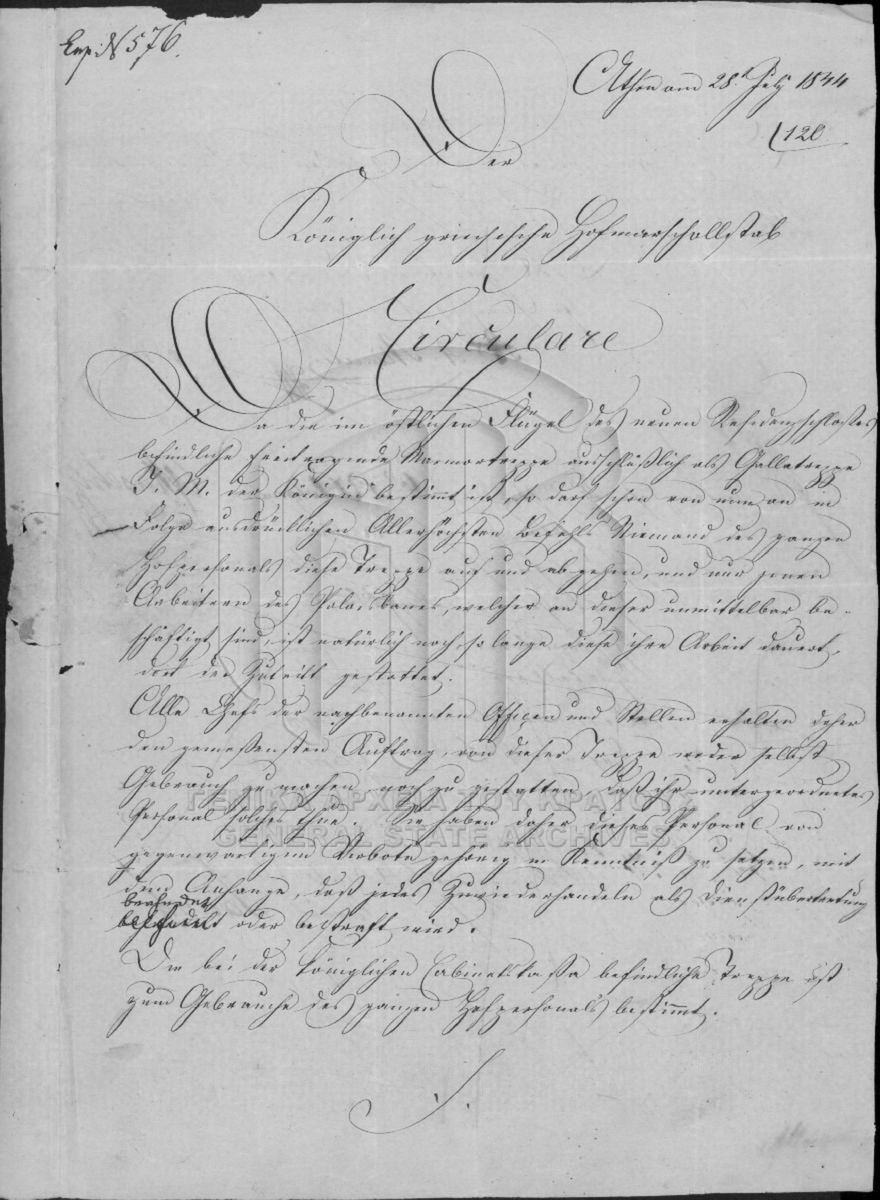 Exp: N 576.
Athen am 28t July 1844
120
Der
Königlich griechische Hofmarschallstab
Circulare
Da die im östlichen Flügel des neuen Residenzschloßes
befindliche freitragende Marmortreppe ausschlüßlich als Gallatreppe
I. M. der Königin bestimmt ist, so darf schon von nun an in
Folge ausdrücklichen Allerhöchsten Befehls Niemand des ganzen
Hofpersonals diese Treppe auf und abgehen, und nur jenen
Arbeitern des Palaisbaues, welcher an dieser unmittelbar be-
schäftigt sind, ist natürlich noch, so lange diese ihre Arbeit dauert,
dort der Zutritt gestattet.
Alle Chefs der nachbenannten Offizen und Stellen erhalten daher
den gemeßensten Auftrag, von dieser Treppe weder selbst
Gebrauch zu machen, noch zu gestatten, daß ihr untergeordnetes
Personal solches thue. Sie haben daher dieses Personal von
gegenwärtigem Verbote gehörig in Kenntniß zu setzen, mit
dem Anhange, daß jedes Zuwiederhandeln als Dienstübertretung
oder bestraft wird.
Die bei der königlichen Cabinetskassa befindliche Treppe ist
zum Gebrauche des ganzen Hofpersonals bestimmt.
ΓΕΝΙΚΑ ΑΡΧΕΙΑ ΤΟΥ ΚΡΑΤΟΥΣ
GENERAL STATE ARCHIVES